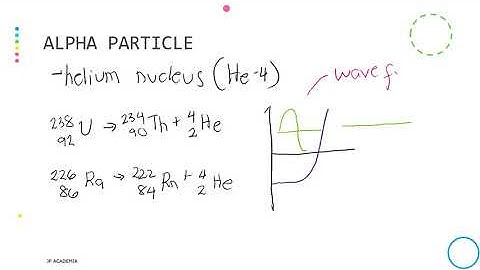 ALPHA PARTICLE
→helium nucleus (He-4)
wave f.
²³⁸₉₂U → ²³⁴₉₀Th + ⁴₂He
²²⁶₈₆Ra → ²²²₈₄Rn + ⁴₂He
JP ACADEMIA